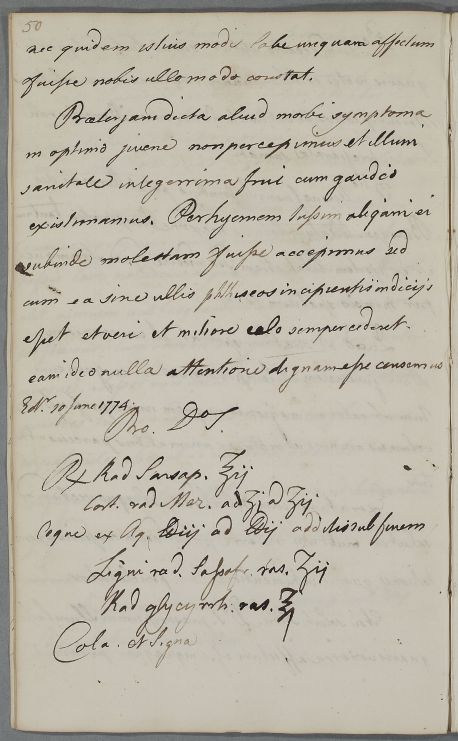 50
nec quidem istius modi labe unquam affectum
fuisse nobis ullo modo constat.
Præter jam dicta aliud morbi symptoma
in optimo juvene non percepimus et illum
sanitate integerrima frui cum gaudio
existimamus. Per hyemem tussim aliquam ei
subinde molestam fuisse accepimus sed
cum ea sine ullis phthiseos incipientis indiciis
esset et veri et mitiore cælo semper cederet
eam ideo nulla attentione dignam esse censemus
Edr. 10 June 1774.
Pro. Do S.
℞ Rad Sarsap. ℥ij
Cort. rad Mez. ad ʒj a ʒij
Coque ex Aq. ad additis sub finem
Ligni rad. Sassafr. ras. ℥ij
Rad glycyrrh. ras. ℥j
Cola. et Signa